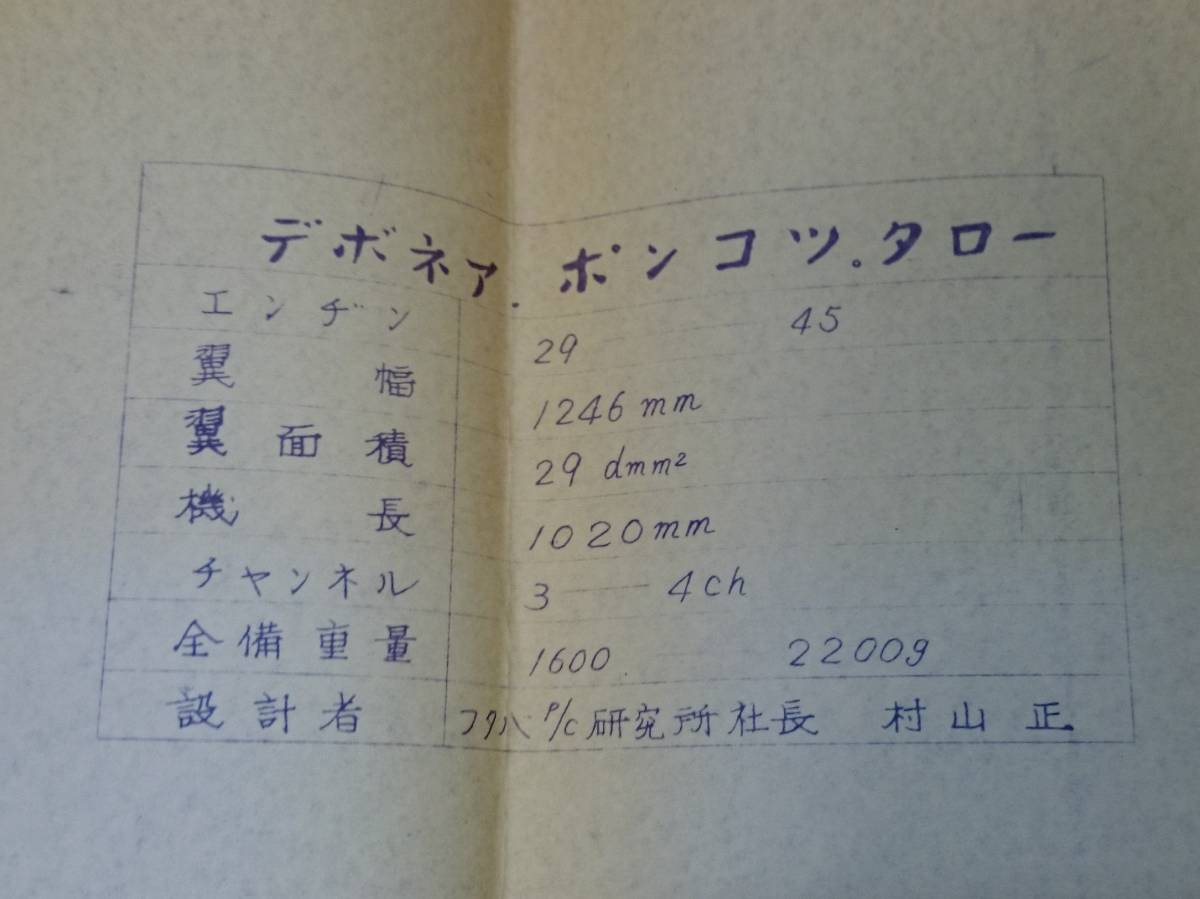 デボネァ.ポンコツ。タロー
エンヂン 29 45
翼幅 1246mm
翼面積 29 dmm²
機長 1020mm
チャンネル 3 — 4ch
全備重量 1600 2200g
設計者 フタバ P/C 研究所社長 村山 正